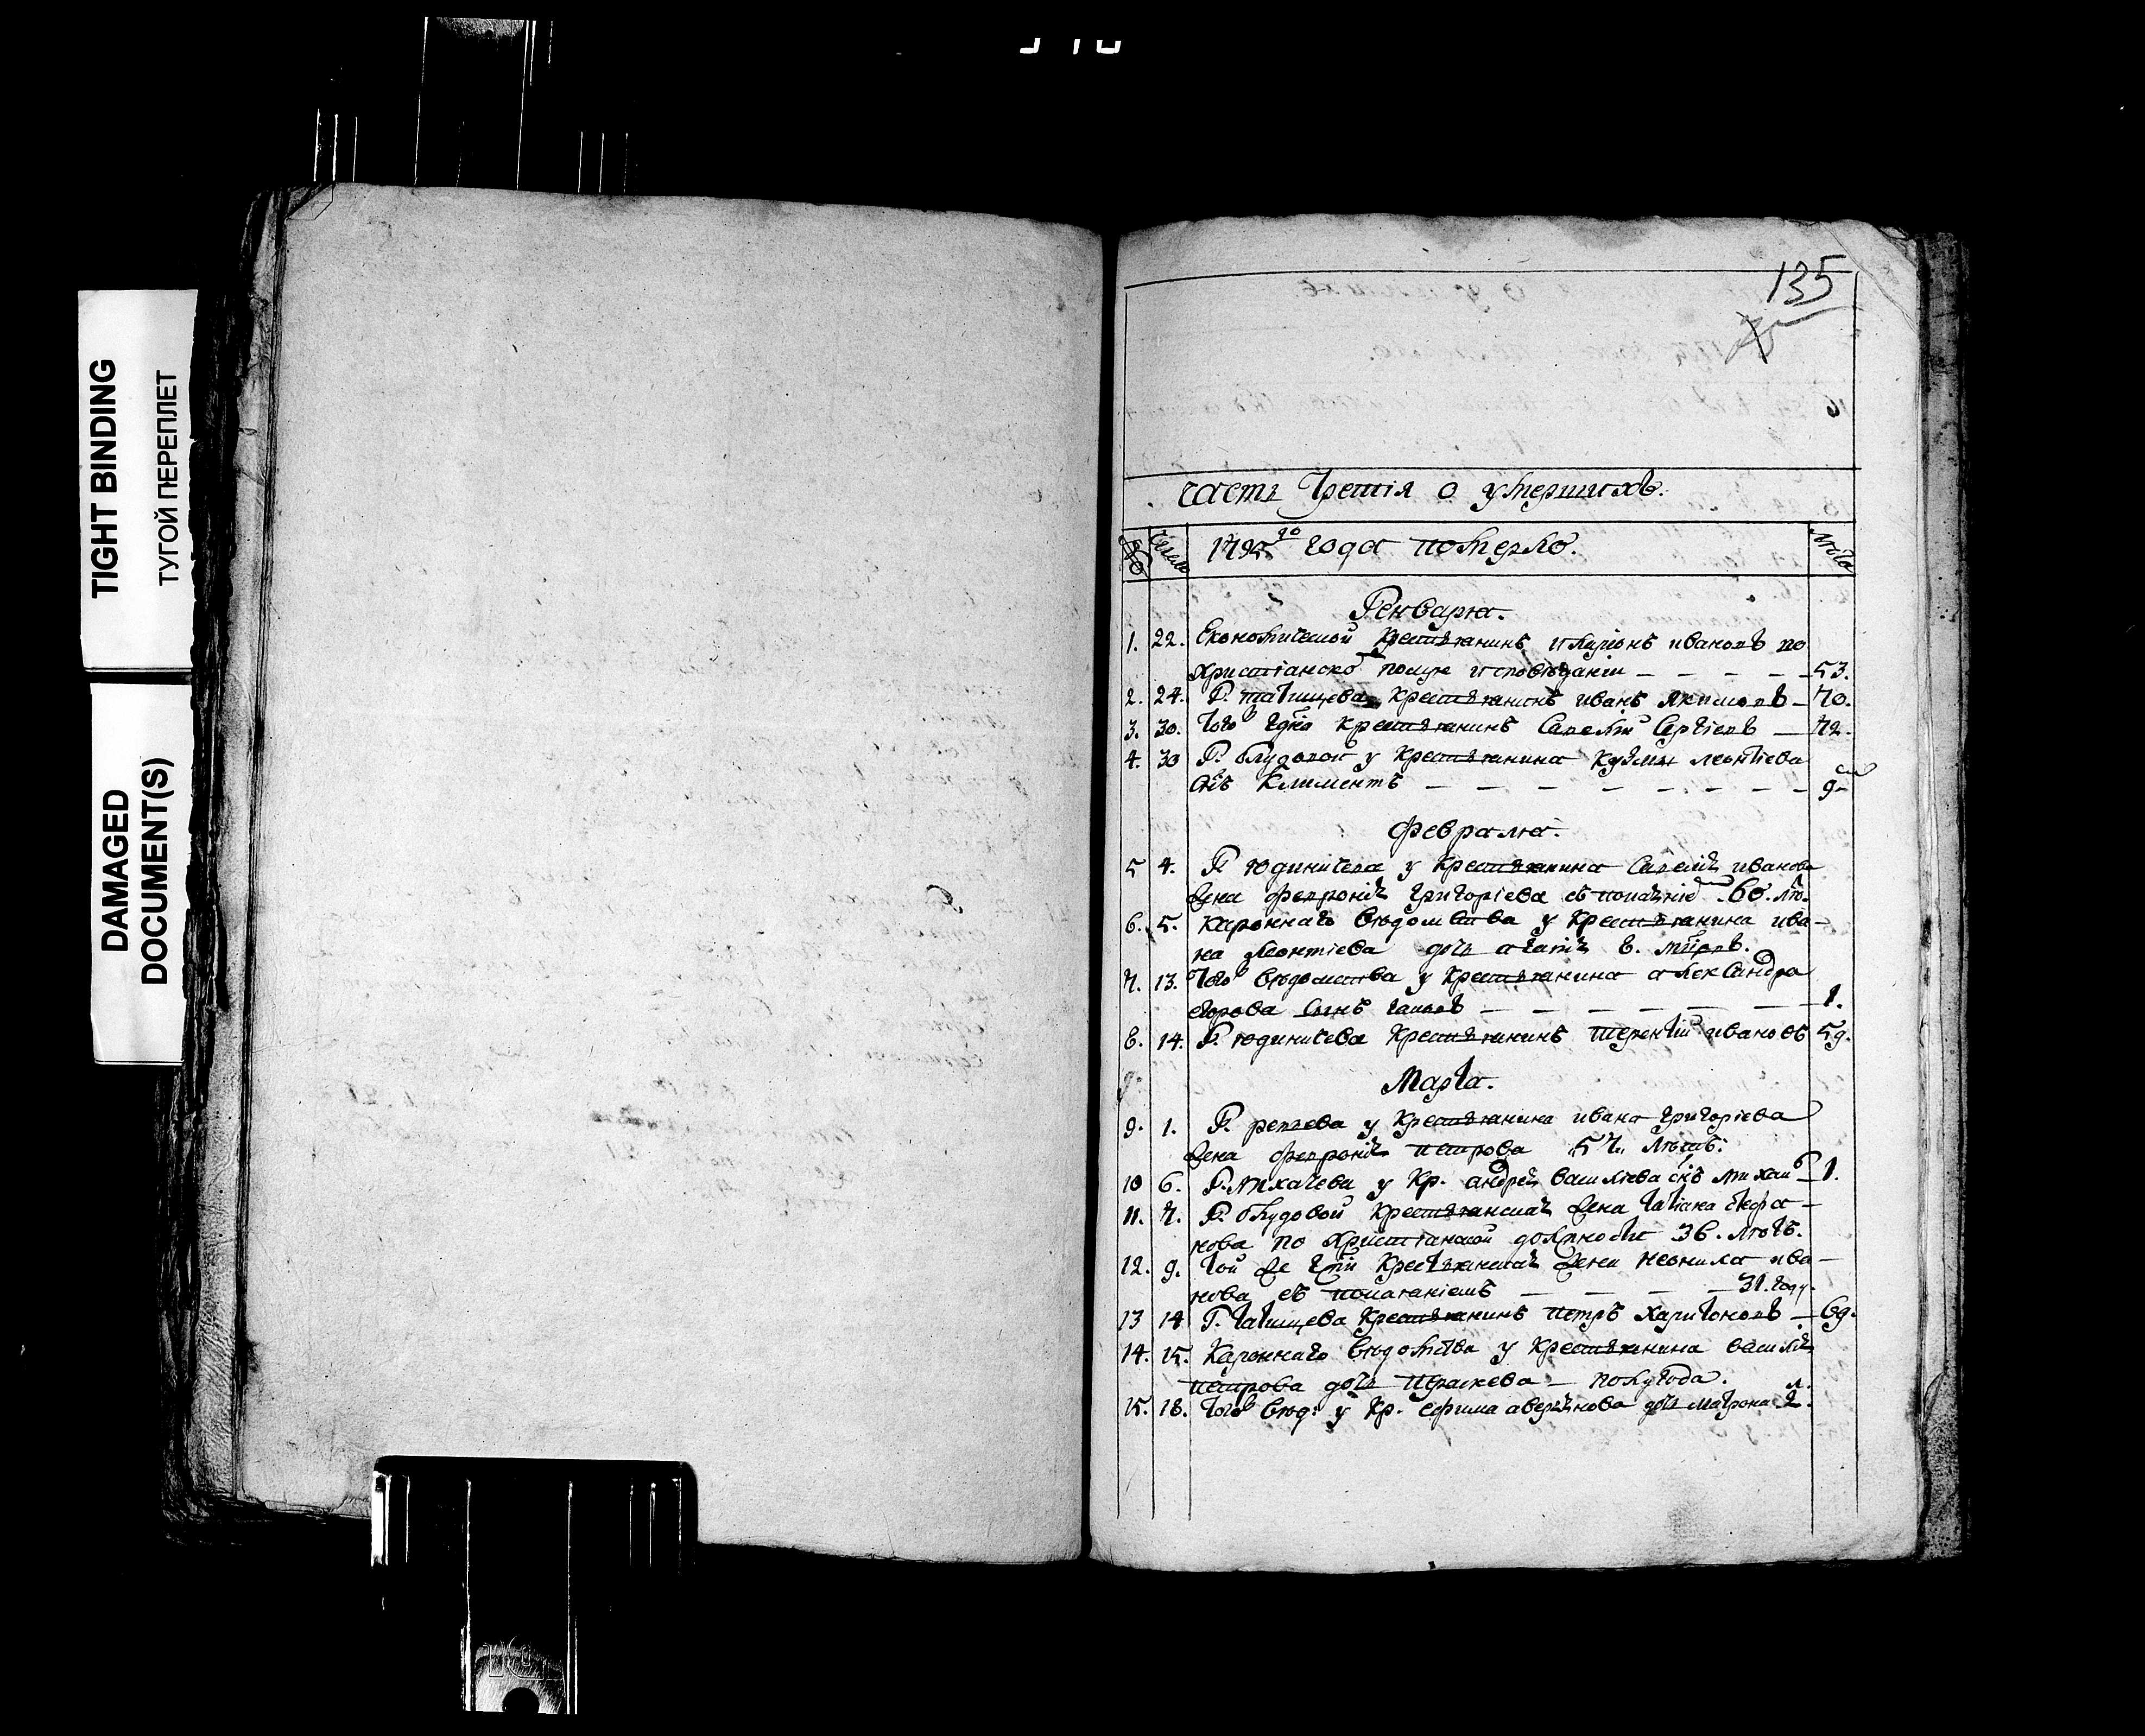 TIGHT BINDING
ТУГОЙ ПЕРЕПЛЕТ
DAMAGED
DOCUMENT(S)
135
75
часть третія о умершихъ.
№ число 179 го года померло. лѣта
Генваря.
1. 22. Економической крестьянинъ иларіонъ ивановъ по
христіанско исповѣданіи — — — 53.
2. 24. Г. татищева крестьянинъ иванъ якимовъ — 70.
3. 30. того крестьянинъ савелій сергіевъ — 72.
4. 30 Г. блудовой у крестьянина кузмы леонтіева
снъ климентъ — — — — — — — 9
февраля.
5 4. Г. юдинцева у крестьянина савелія иванова
жена февронія григоріева съ 60. лѣ.
6. 5. Казеннаго вѣдомства у крестьянина ива-
на леонтіева дочь агапія 8. мцовъ.
7. 13. того вѣдомства у крестьянина александра
егорова сынъ — — — — 1.
8. 14. Г. юдинцева крестьянинъ терентій ивановъ 59.
Марта.
9. 1. Г. ревзева у крестьянина ивана григоріева
жена февронія петрова 57. лѣтъ.
10 6. Г. лихачева у кр. андрея василіева снъ михаи 1.
11. 7. Г. блудовой крестьянская жена татіана стефа-
нова по христіанской должности 36. лѣтъ.
12. 9. той же гпжи крестьянская жена неонила ива-
нова съ — — — 31. году.
13 14 Г. татищева крестьянинъ петръ харитоновъ — 69.
14. 15. Казеннаго вѣдомства у крестьянина василія
петрова дочь параскева — полугода.
15. 18. того вѣд: у кр. ефима аверьянова дочь матрона 2. л.